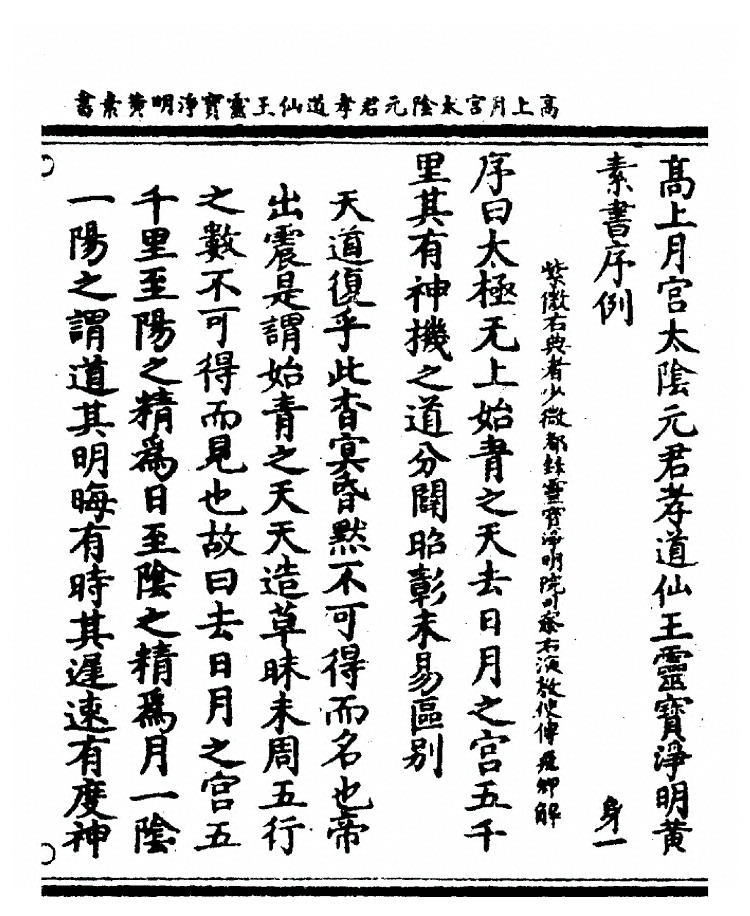 高上月宮太陰元君孝道仙王靈寶淨明黃素書
高上月宮太陰元君孝道仙王靈寶淨明黃
素書序例 身一
紫微右典者少微都錄靈寶淨明院司察右演教使傅飛卿解
序曰太極无上始青之天去日月之宮五千
里其有神機之道分闢昭彰未易區別
天道復乎此杳冥昏默不可得而名也帝
出震是謂始青之天天造草昧未周五行
之數不可得而見也故曰去日月之宮五
千里至陽之精爲日至陰之精爲月一陰
一陽之謂道其明晦有時其遲速有度神